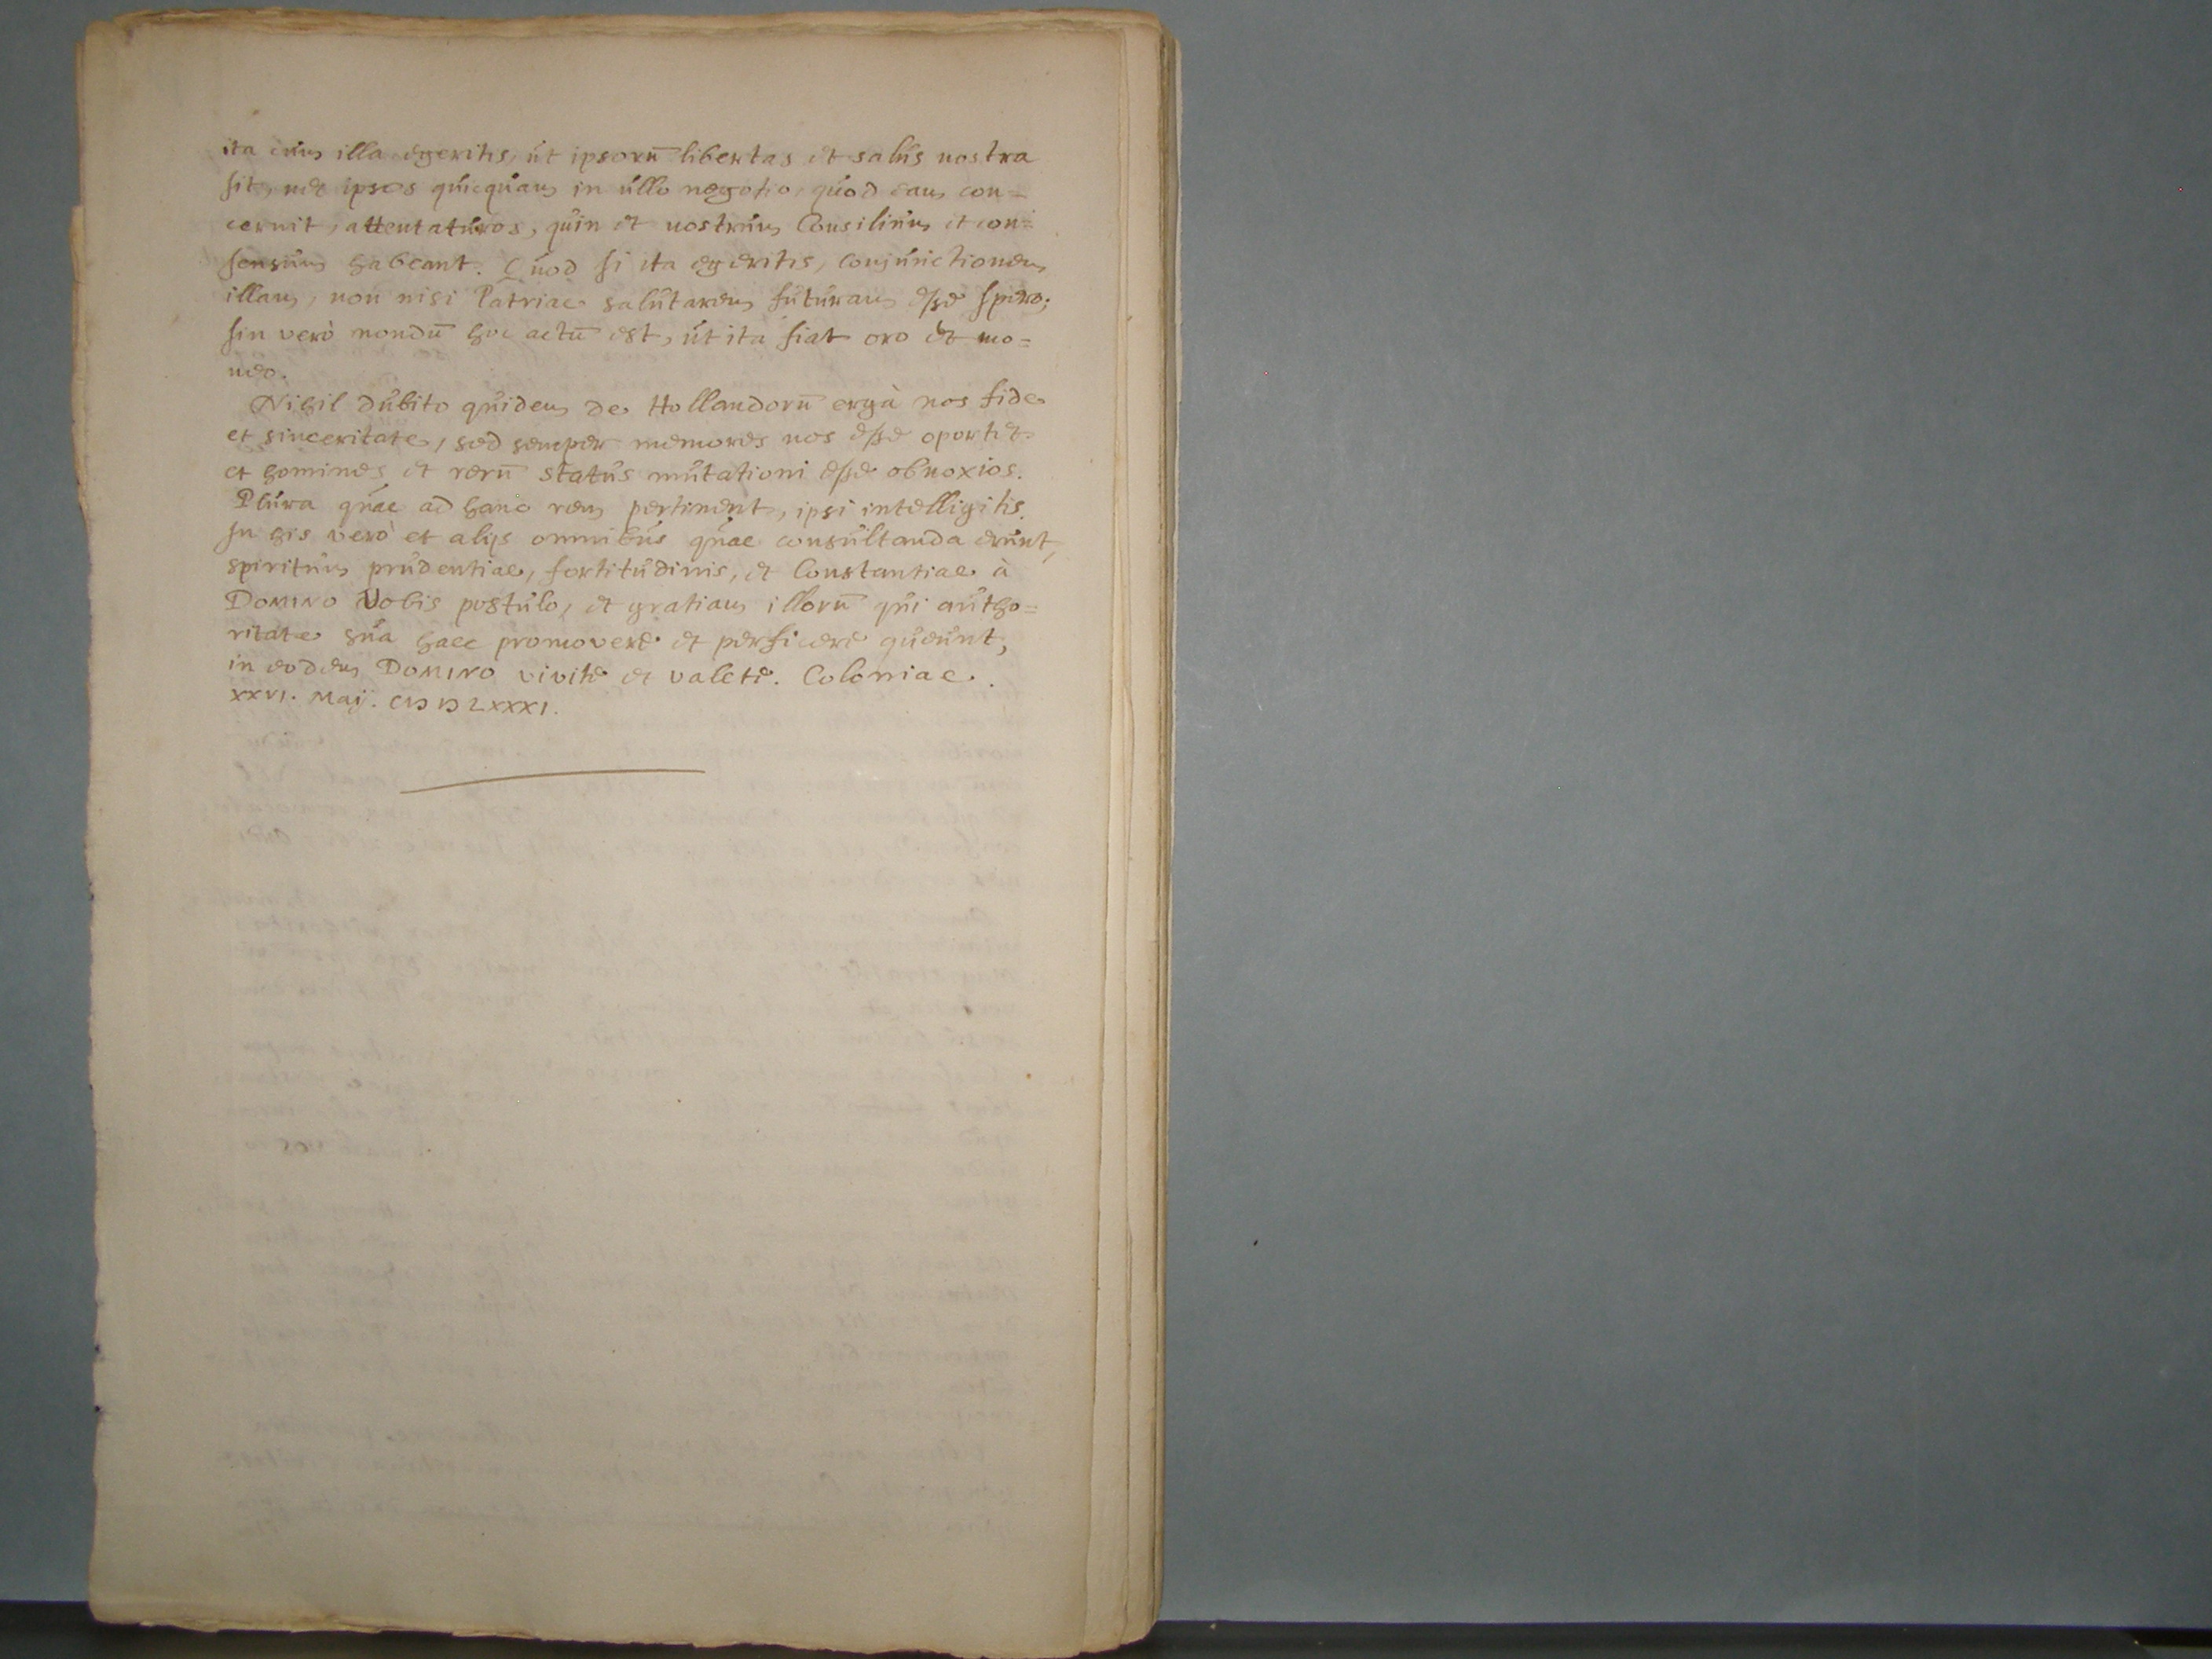 ita cum illa egeritis, ut ipsorū libertas et salus nostra
sit, nec ipsos quicquam in ullo negotio, quod eam con=
cernit, attentaturos, quin et nostrum Consilium et con=
sensum habeant. Quod si ita egeritis, conjunctionem
illam, non nisi Patriae salutarem futuram esse spero;
sin verò nondū hoc actū est, ut ita fiat oro et mo=
neo.
Nihil dubito quidem de Hollandorū ergà nos fide
et sinceritate, sed semper memores nos esse oportet
et homines et rerū status mutationi esse obnoxios.
Plura quae ad hanc rem pertinent, ipsi intelligitis.
In his verò et alijs omnibus quae consultanda erunt,
spiritum prudentiae, fortitudinis, et Constantiae à
DOMINO Vobis postulo, et gratiam illorū qui autho=
ritate sua haec promovere et perficere queunt,
in eodem DOMINO vivite et valete. Coloniae.
XXVI. Maij. CIↃ IↃ LXXXI.